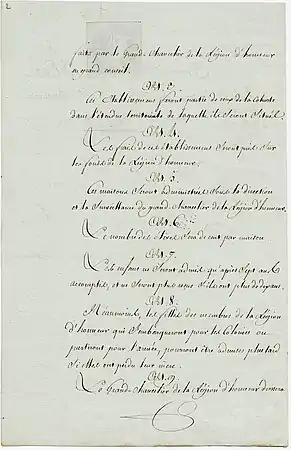 2
faite par le Grand Chancelier de la Légion d'honneur
au grand conseil.
Art. 3.
Ces Etablissemens feront partie de ceux de la Cohorte
dans l'étendue territoriale de laquelle ils seront situés.
Art. 4.
Les frais de ces Etablissemens seront pris sur
les fonds de la Légion d'honneur.
Art. 5.
Ces maisons seront administrées sous la direction
et la surveillance du grand Chancelier de la Légion d'honneur.
Art. 6.
Le nombre des élèves sera de cent par maison
Art. 7.
Les enfans ne seront admis qu'après sept ans
accomplis, et ne seront plus reçus s'ils ont plus de dix ans.
Art. 8.
Néanmoins, les filles des membres de la Légion
d'honneur qui s'embarqueront pour les Colonies ou
partiront pour l'armée, pourront être admises plus tard
si elles ont perdu leur mère.
Art. 9.
Le Grand Chancelier de la Légion d'honneur donnera